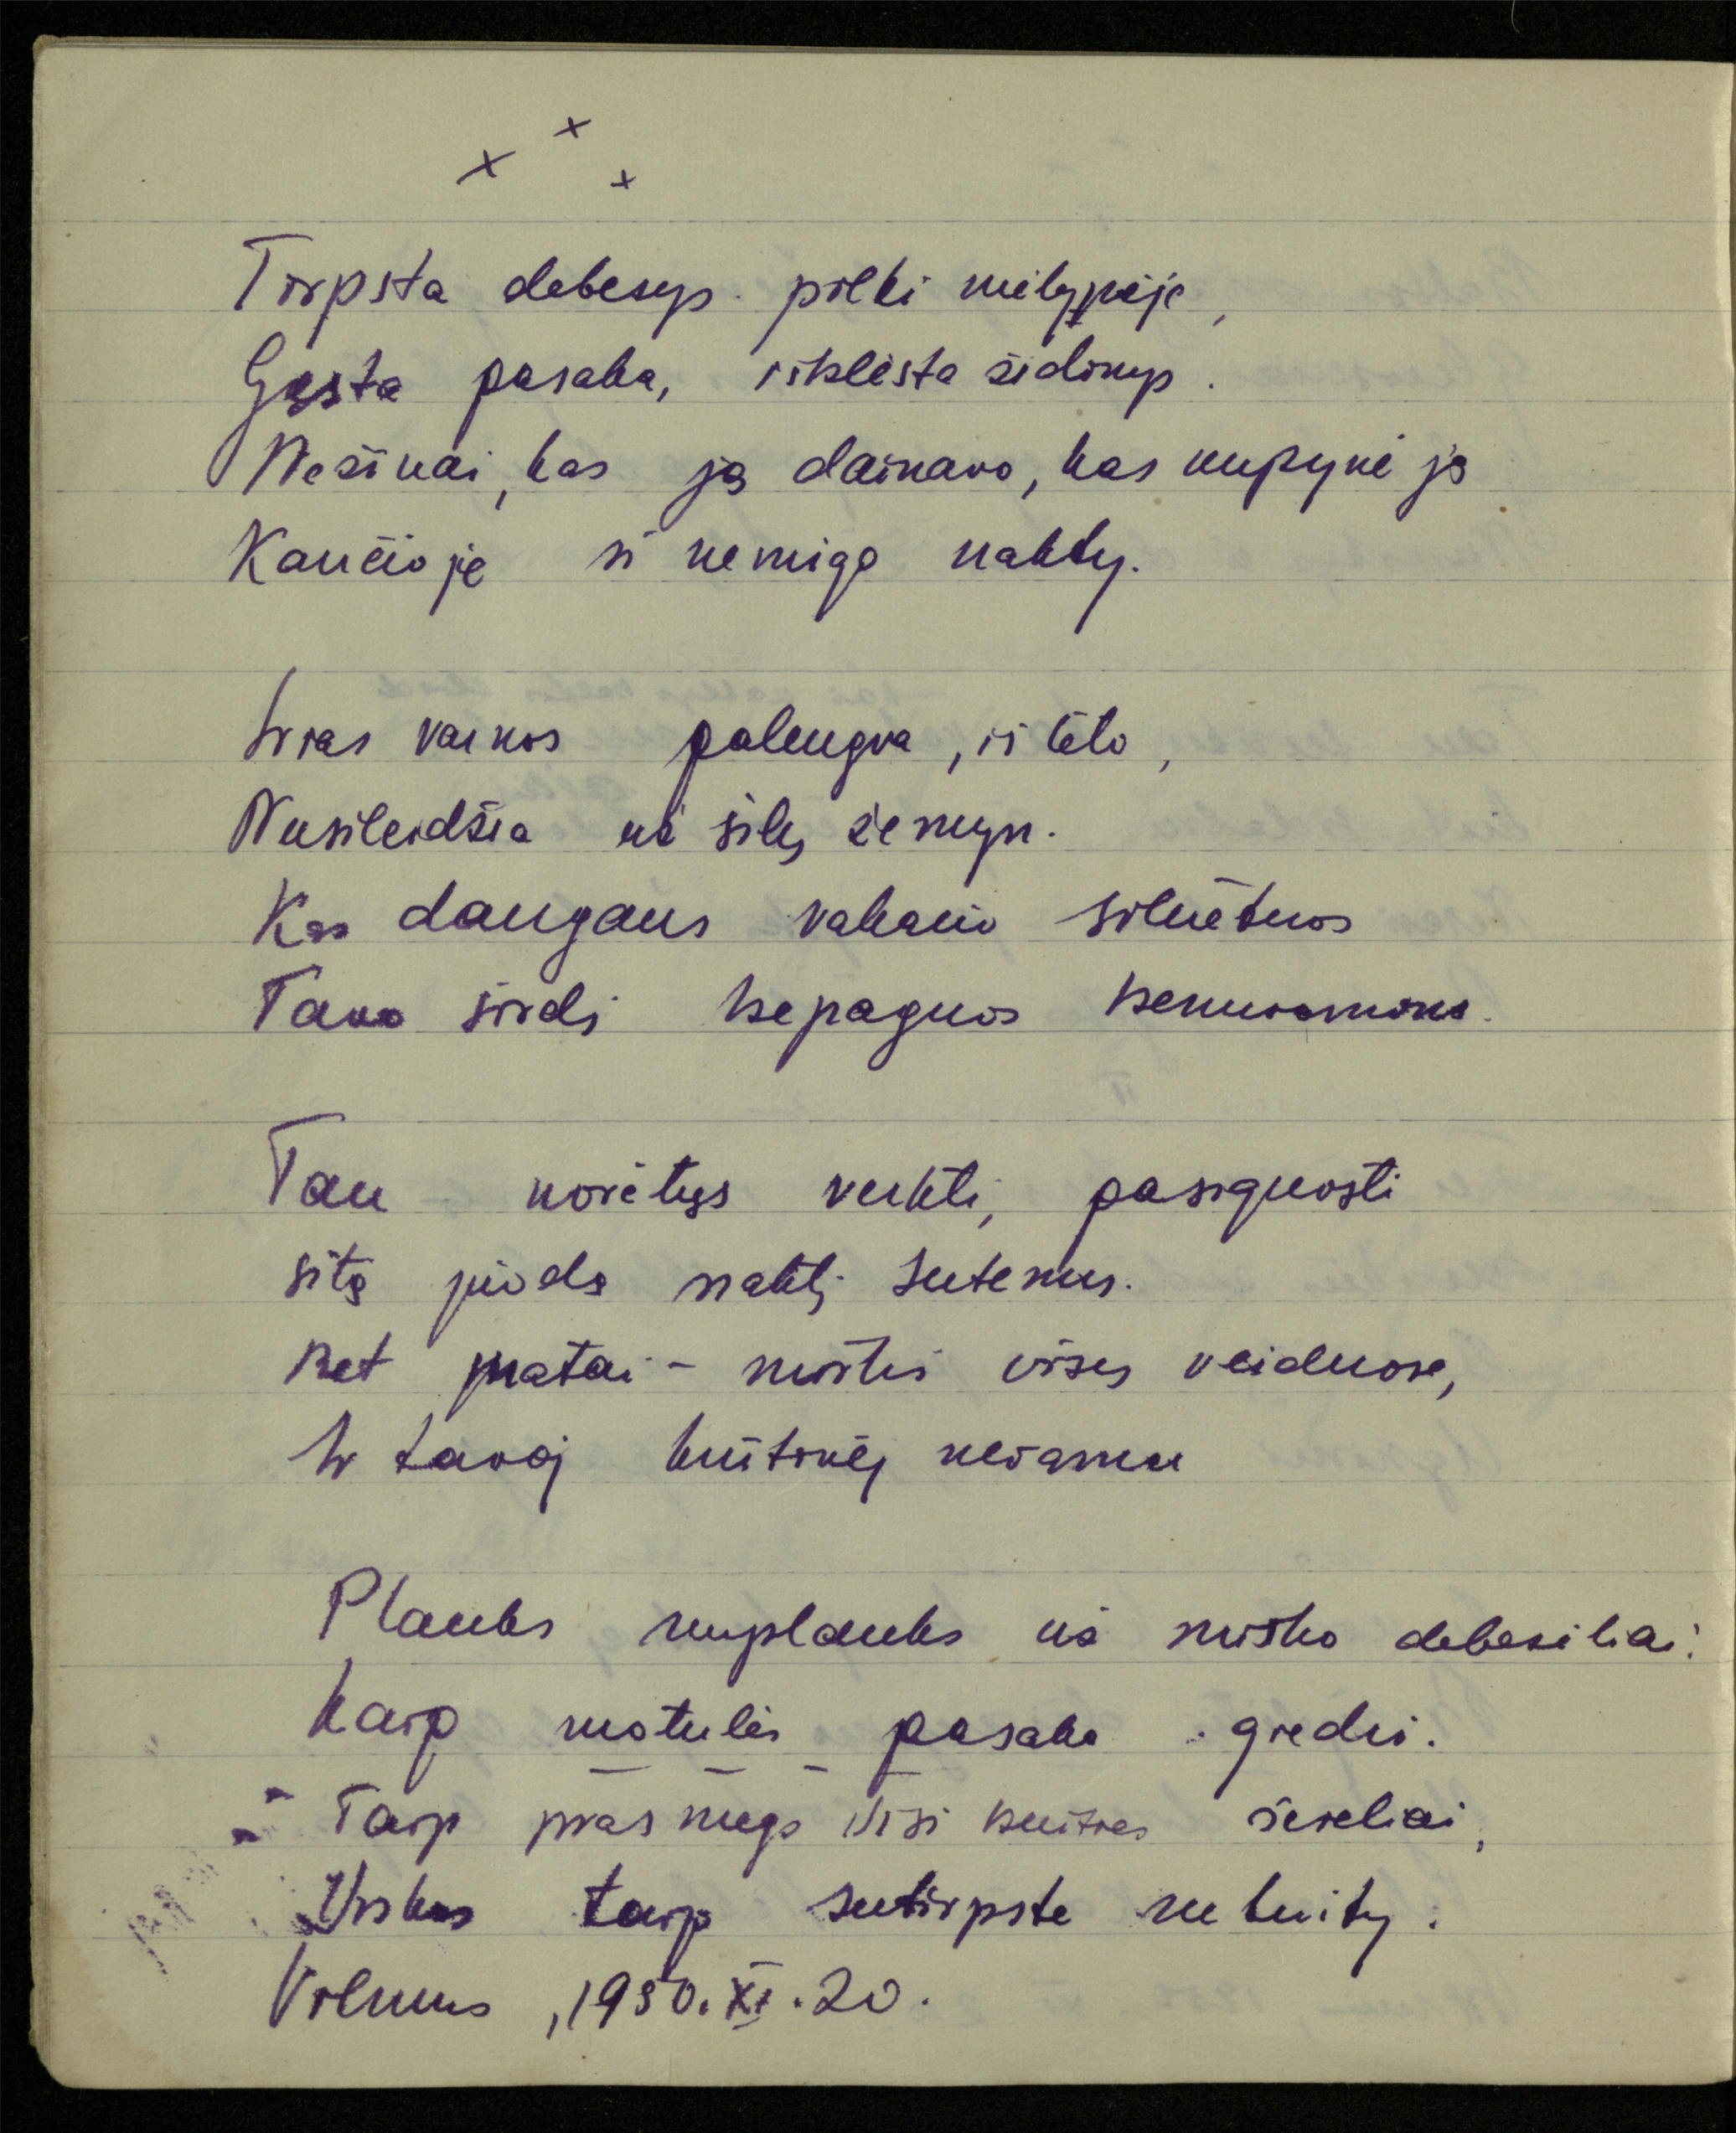 x x x
Tirpsta debesys pilki mėlynėje,
Gęsta pasaka, išklista žiedinys.
Nežinai, kas ją dainavo, kas nupynė ją
Kančioje ši nemigo naktų.
Ir ras varnos palengva, iš lėto,
Nusileidžia už šilų žemyn.
Kas dangaus vakario siluetuos
Tavo širdį bepaguos
Tau norėtųs verkti, pasiguosti
šitą juodą naktį sutemus.
Bet matai – mirtis visų veiduose,
Ir tavoj krūtinėj neramu
Plauks nuplauks už miško debesėliai.
Kaip motulės pasaka gredu.
Taip prasmego visi šešėliai,
Viskas taip sutirpsta
Vilnius, 1950.XI.20.